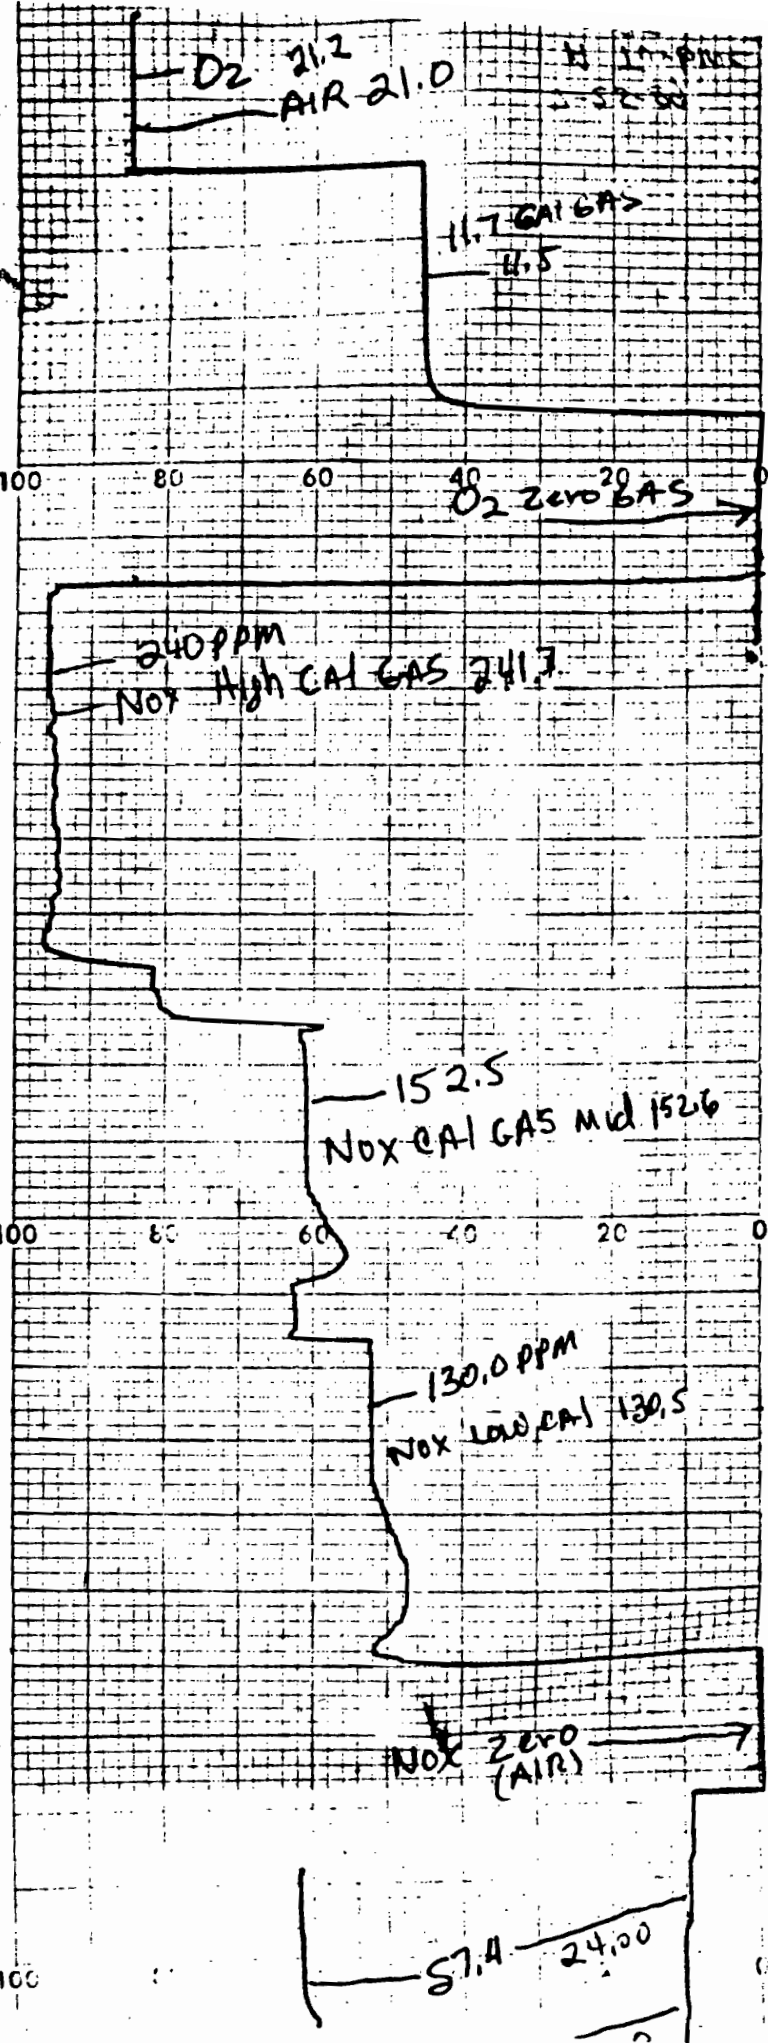 O2 21.2
AIR 21.0
11.7 CAl GAS
11.5
100 80 60 40 20 0
O2 Zero GAS
240 PPM
NOX High CAl GAS 241.7
152.5
NOX CAl GAS Mid 152.6
100 60 40 20 0
130.0 PPM
NOX LOW CAl 130.5
NOX Zero
(AIR)
24.00
100